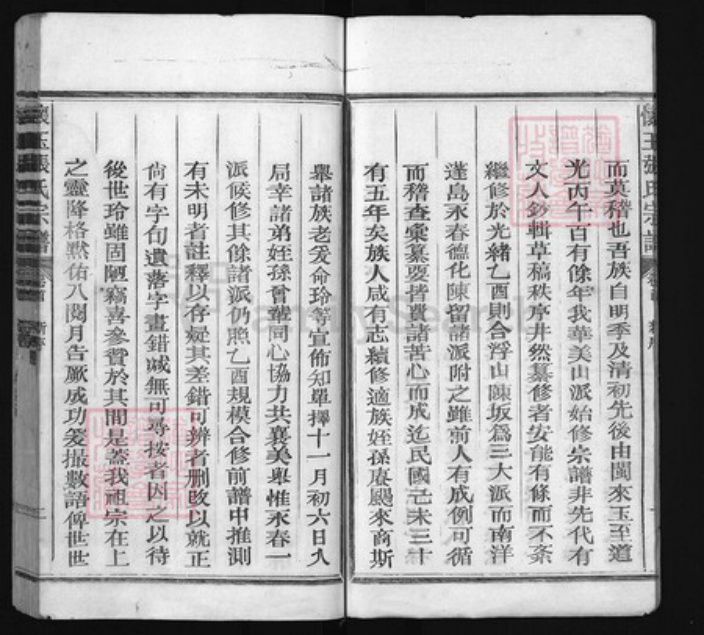 而莫稽也吾族自明季及清初先後由閩來玉至道
光丙午百有餘年我華美山派始修宗譜非先代有
文人鈔輯草稿秩序井然纂修者安能有條而不紊
繼修於光緒乙酉則合浮山陳坂為三大派而南洋
蓬島永春德化陳留諸派附之雖前人有成例可循
而稽查彙纂要皆費諸苦心而成迄民國己未三十
有五年矣族人咸有志續修適族姪孫賡颺來商斯
舉諸族老爰命玲等宣佈知單擇十一月初六日入
局幸諸弟姪孫曾輩同心協力共襄美舉惟永春一
派候修其餘諸派仍照乙酉規模合修前譜中推測
有未明者註釋以存疑其差錯可辨者刪改以就正
尚有字句遺落字畫錯減無可尋按者因之以待
後世玲雖固陋竊喜參贊於其間是蓋我祖宗在上
之靈降格默佑八閱月告厥成功爰撮數語俾世世
懷玉張氏宗譜
卷首
新序